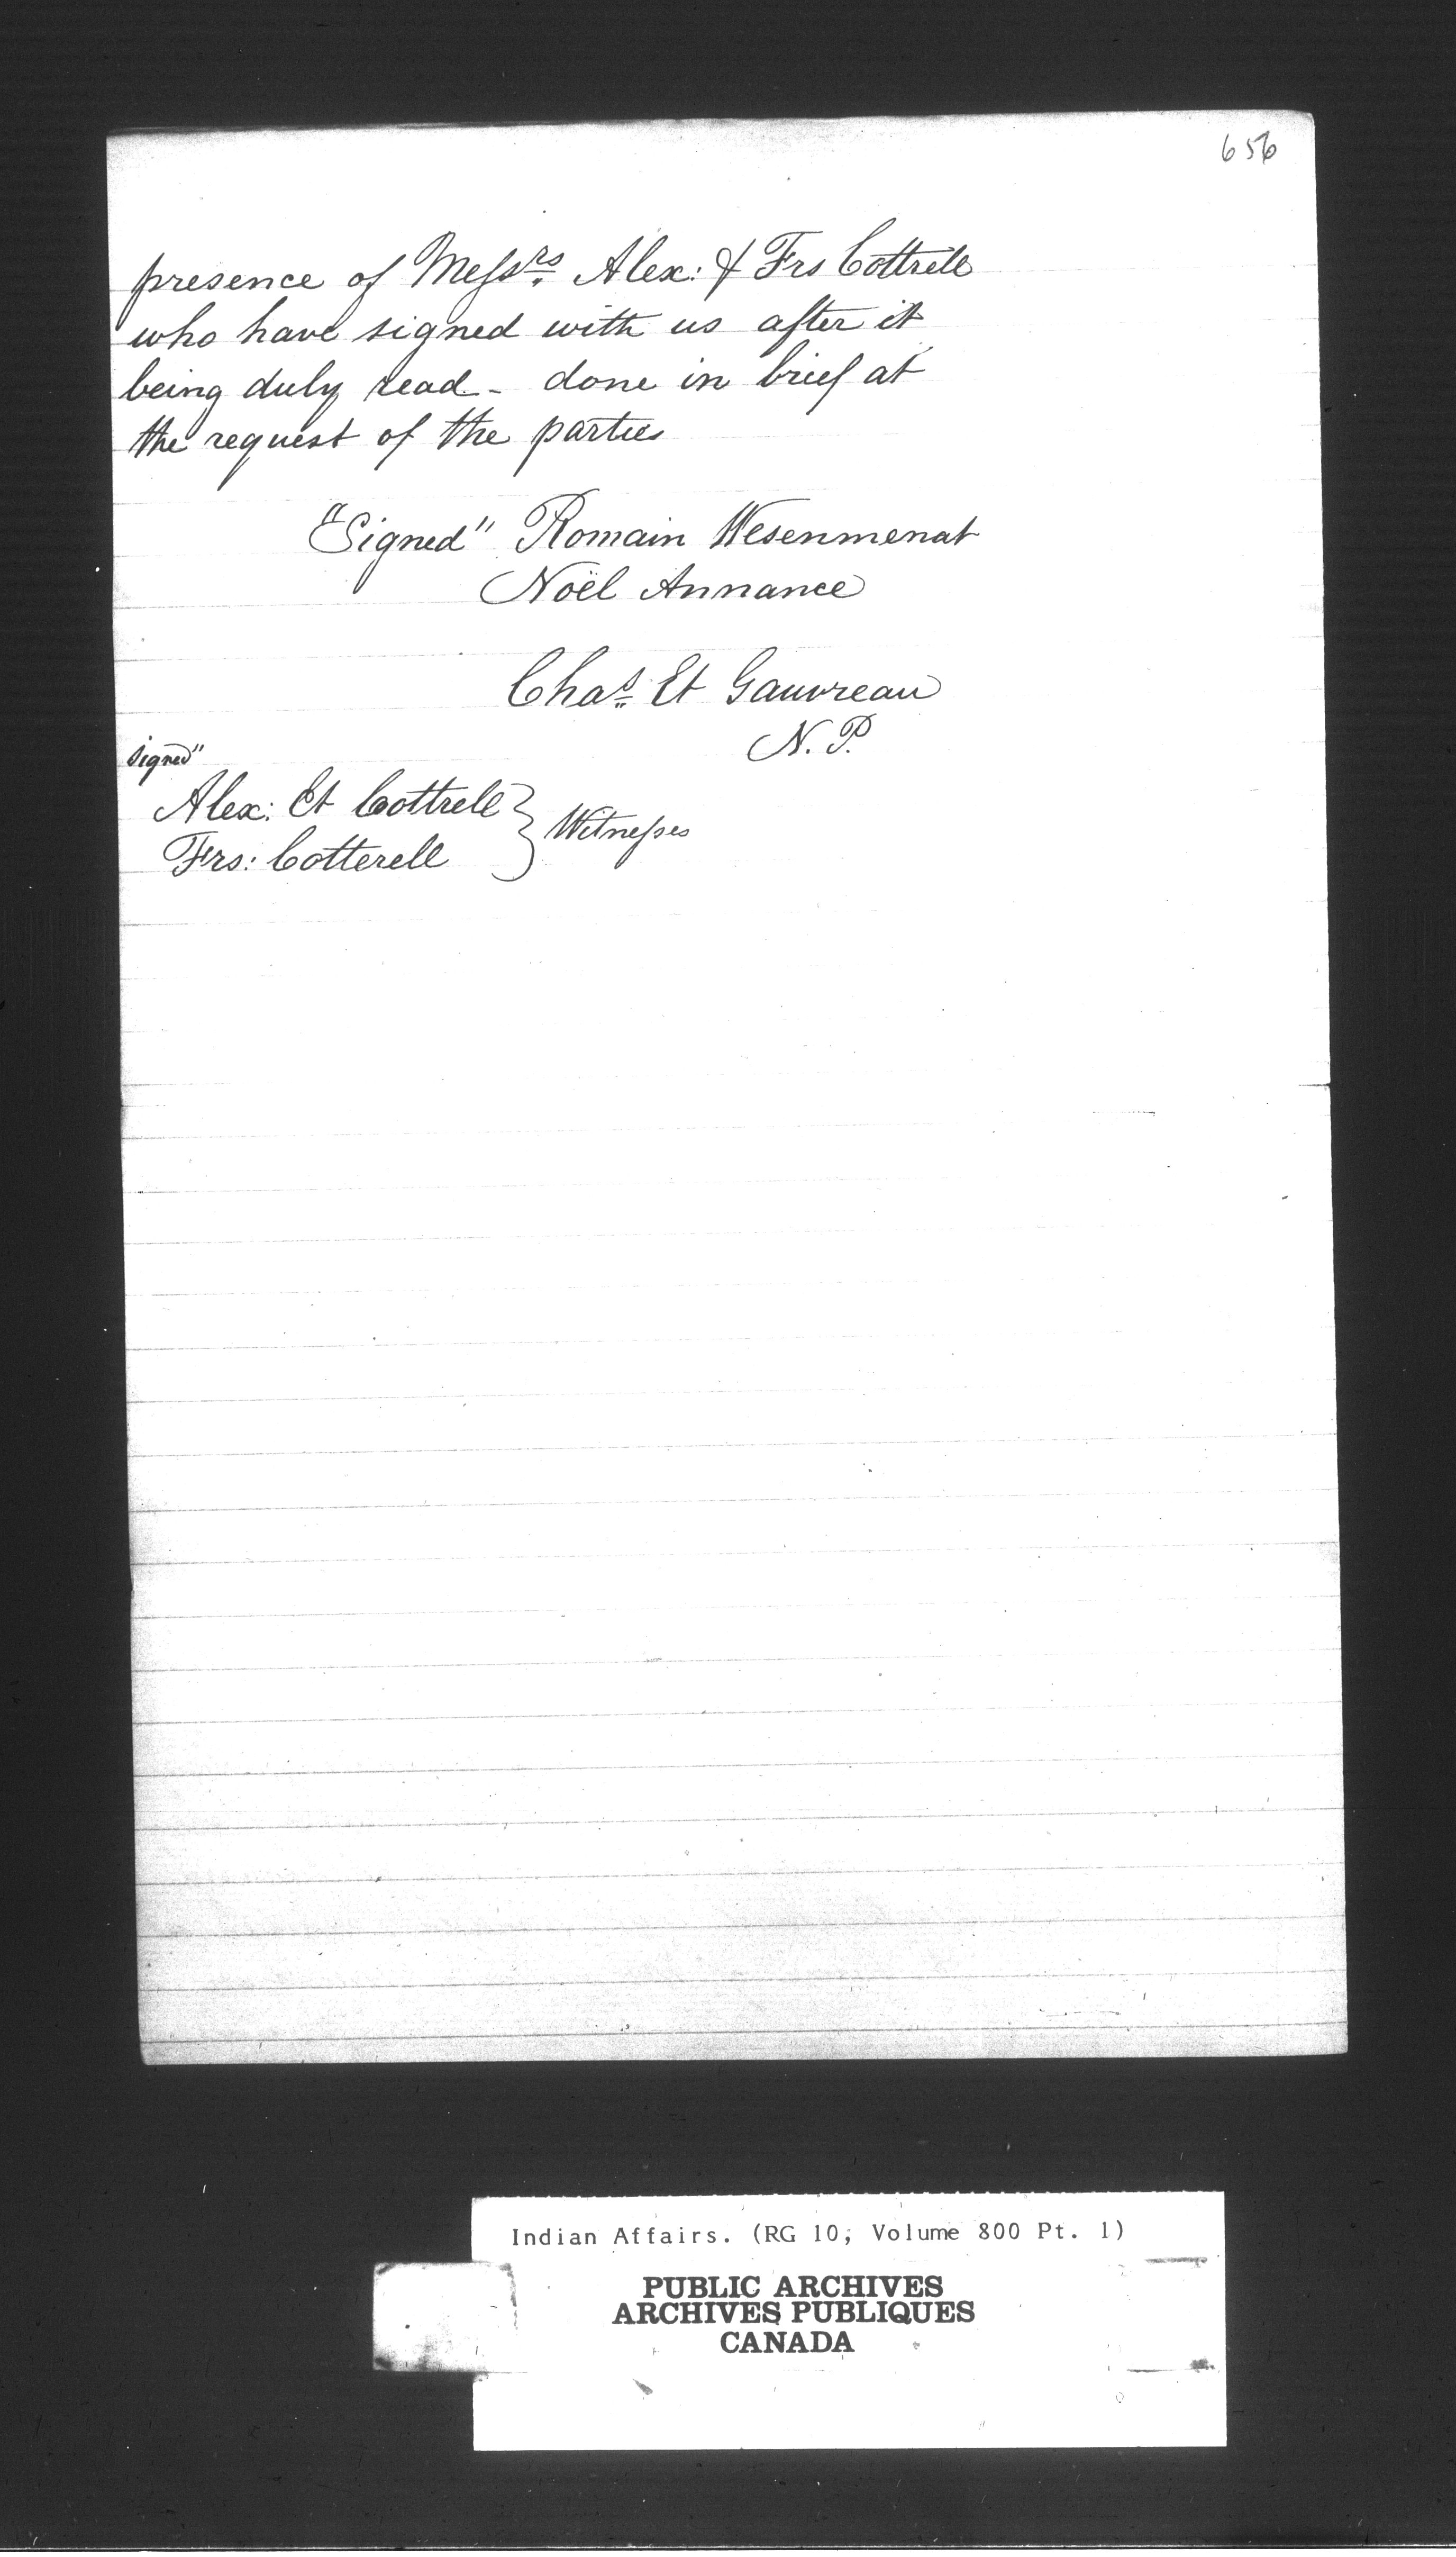 656
presence of Messrs. Alex: & Frs Cottrell
who have signed with us after it
being duly read - done in brief at
the request of the parties
"Signed" Romain Wesenmenat
Noël Annance
Chas. Et Gauvreau
N. P.
signed"
Alex: Et Cottrell } Witnesses
Frs: Cotterell
Indian Affairs. (RG 10, Volume 800 Pt. 1)
PUBLIC ARCHIVES
ARCHIVES PUBLIQUES
CANADA